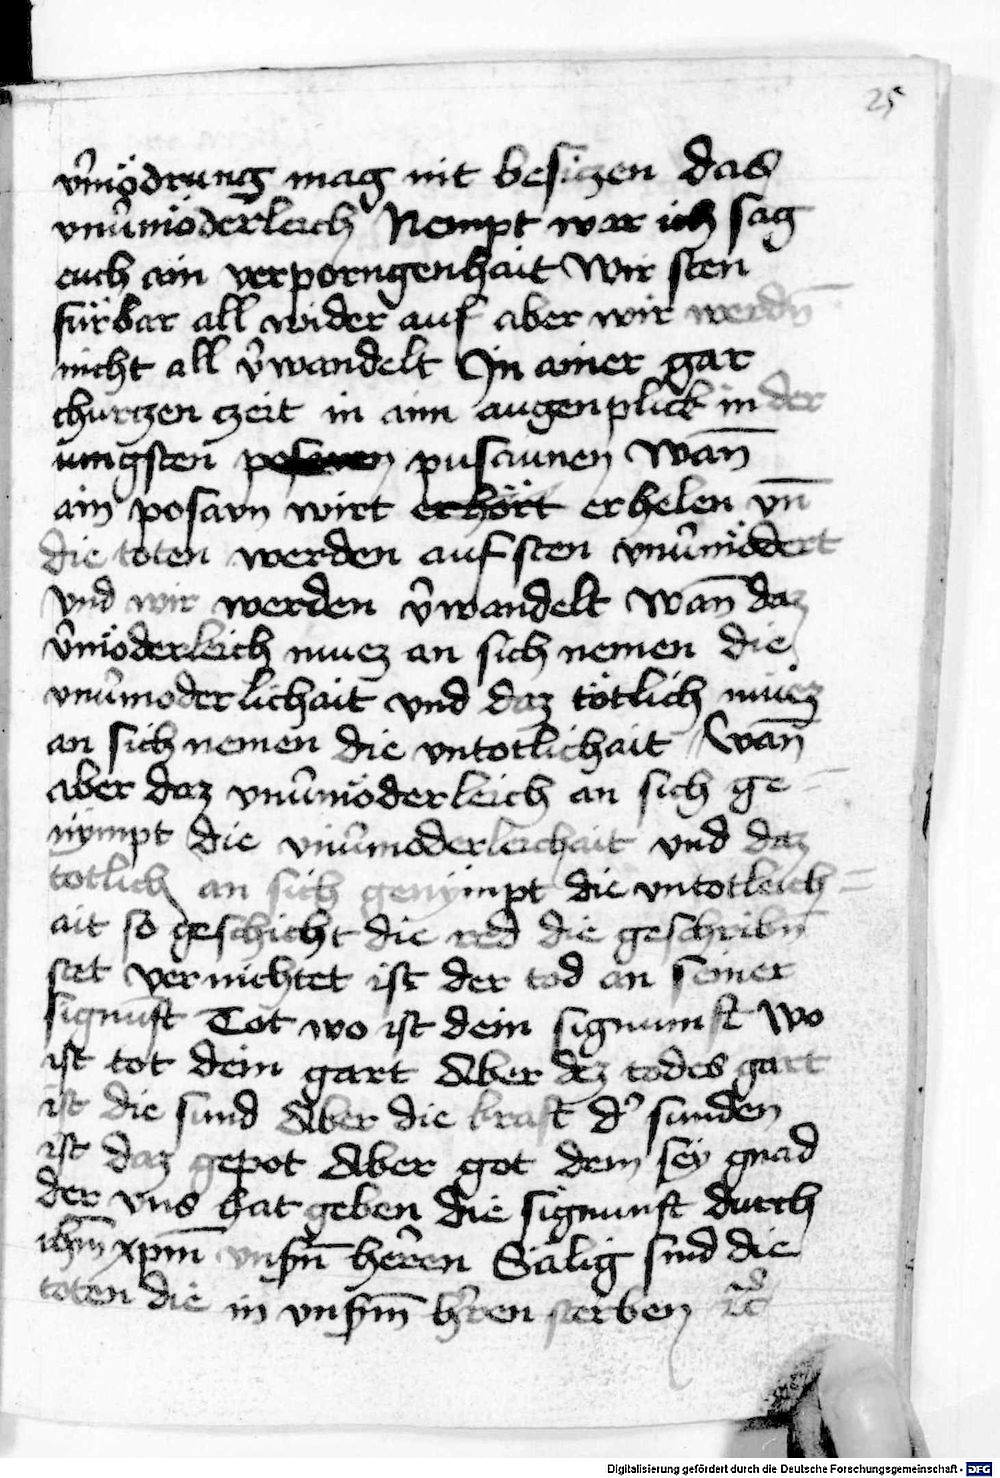 25
v̂mödrung mag nit besiczen das
vnv̂möderleich Nempt war ich sag
euch ain verporngenhait Wir sten
fürbar all wider auf aber wir werdn̄
nicht all v̂wandelt In ainer gar
churczen czeit in aim augenplick in der
iungsten pusaunen Wan̄
ain posavn wirt erhört erhelen vn̄
die toten werden auf sten vnv̂mödert
vnd wir werden v̂wandelt Wan̄ daz
v̂möderleich muez an sich nemen die
vnv̂moderlichait vnd daz tötlich muez
an sich nemen die vntotlichait Wan̄
aber daz vnv̂möderleich an sich ge=
nympt die vnv̂moderleichait vnd daz
totlich an sich genympt die vntotleich=
ait so geschicht die red die geschribn̄
stet vernichtet ist der tod an seiner
signuft Tot wo ist dein signumft Wo
ist tot dein gart Aber dez todes gart
ist die sund Aber die kraft d' sunden
ist daz gepot Aber got dem sey gnad
der vns hat geben die signunft durch
ihm̄ xpm̄ vnsn̄ herren Sälig sind die
toten die in vnserm̄ h'ren sterben
Digitalisierung gefördert durch die Deutsche Forschungsgemeinschaft - DFG